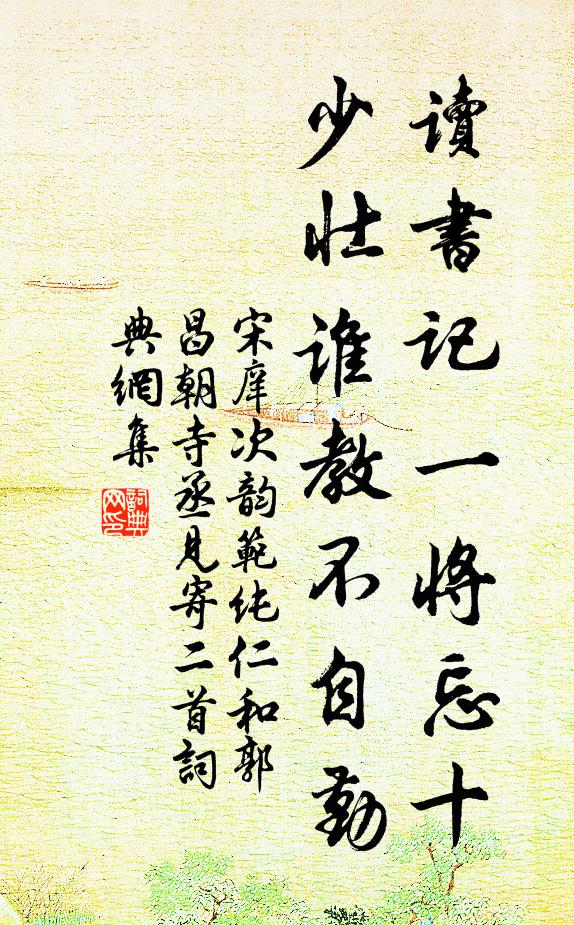 讀書記一將忘十
少壯誰教不自勤
宋庠次韵範純仁和郭
昌朝寺丞見寄二首詞
典網集
詞典
网印